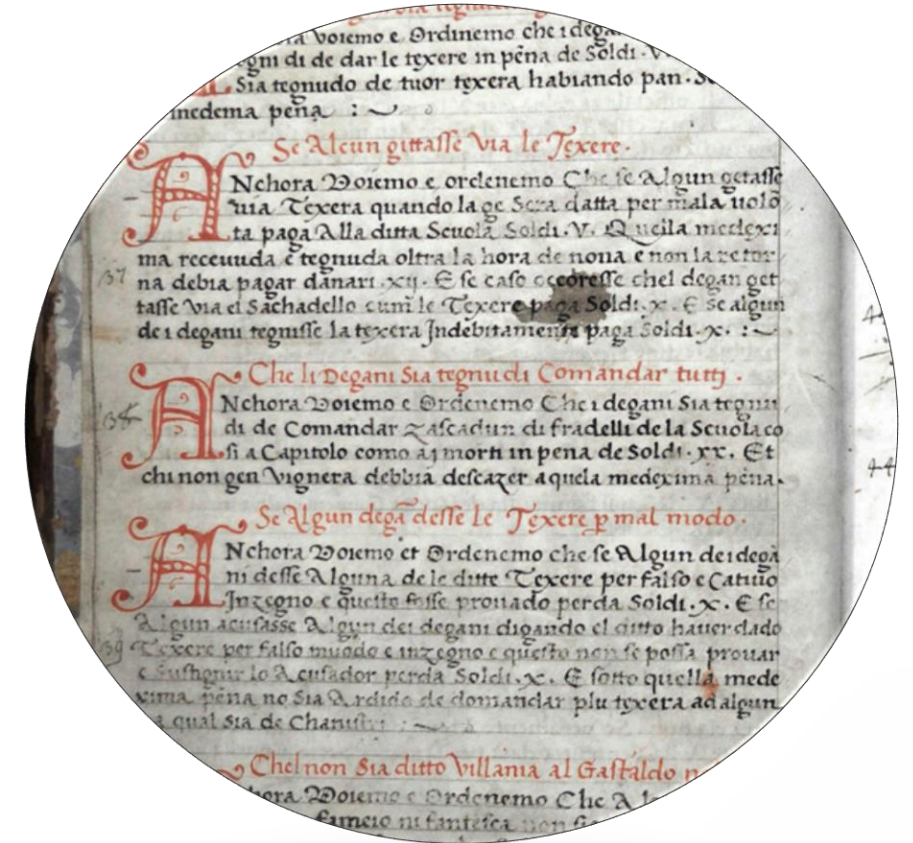 Voiemo e Ordinemo che i dega
gni di de dar le texere in pēna de Soldi · V
Sia tegnudo de tuor texera habiando pan · S
medema pena :
Se Alcun gittasse via le Texere ·
ANchora Voiemo e ordenemo Che se Algun getasse
via Texera quando la ge Sera datta per mala uolō
ta paga Alla ditta Scuola Soldi · V · Quella medexi
ma receuuda e tegnuda oltra la hora de nona e non la retor
na debia pagar danari · xij · E se caso occoresse chel degan get
tasse via el Sachadello cum le Texere paga Soldi · x · E Se algun
de i degani tegnisse la texera Indebitamente paga Soldi · x · :
37
Che li Degani Sia tegnudi Comandar tutti ·
ANchora Voiemo e Ordenemo Che i degani Sia tegnu
di de Comandar zascadun di fradelli de la Scuola co
si a Capitolo como ai morti in pena de Soldi · xx · Et
chi non gen vignera debbia descazer aquela medexima pena ·
38
Se Algun degā desse le Texere ꝑ mal modo ·
ANchora Voiemo et Ordenemo che se Algun dei degā
ni desse Alguna de le ditte Texere per falso e Catiuo
Inzegno e questo fosse prouado perda Soldi · x · E se
Algun acusasse Algun dei degani digando el ditto hauer dado
39 Texere per falso muodo e inzegno e questo non se possa prouar
e sustignir lo Acusador perda Soldi · x · E sotto quella mede
xima pēna no Sia Ardido de domandar plu texera ad algun
a qual Sia de
Chel non Sia ditto Villania al Gastaldo
hora Voiemo e Ordenemo Che A
fameio ni fantesca non